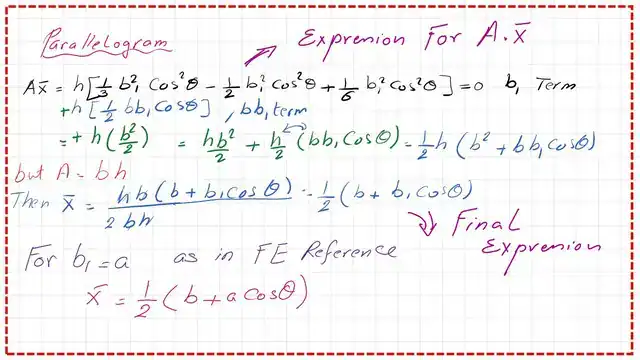 Parallelogram
Exprenion For A.x̄
Ax̄ = h[1/3 b₁² Cos²θ - 1/2 b₁² Cos²θ + 1/6 b₁² Cos²θ] = 0 b₁ Term
+h[1/2 bb₁ Cosθ], bb₁ term
= + h(b²/2) = hb²/2 + h/2 (bb₁ Cosθ) = 1/2 h (b² + bb₁ Cosθ)
but A = bh
Then x̄ = hb(b + b₁ Cosθ)/2bh = 1/2 (b + b₁ Cosθ)
Final
Exprenion
For b₁ = a as in FE Reference
x̄ = 1/2 (b + a Cosθ)